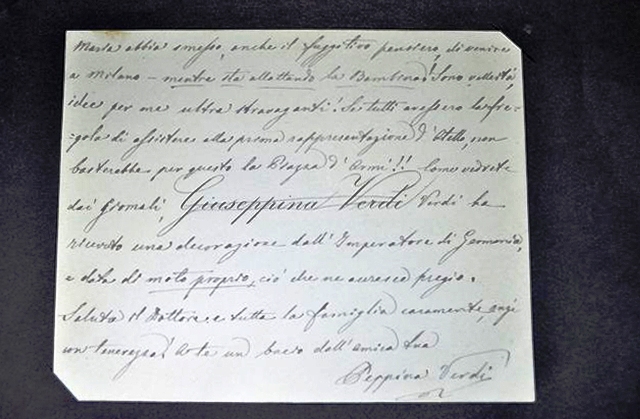 Maria abbia smesso, anche il fuggitivo pensiero, di venire
a Milano – mentre sta allattando la Bambina! Sono velleità,
idee per me ultra stravaganti! Se tutti avessero la fre-
-gola di assistere alla prima rappresentazione d'Otello, non
basterebbe, per questo la Piazza d'Armi!! Come vedrete
dai Giornali, Giuseppina Verdi Verdi ha
ricevuto una decorazione dall'Imperatore di Germania,
e data di moto proprio, ciò che ne accresce pregio.
Saluta il Dottore e tutta la famiglia caramente, anzi
con tenerezza! A te un bacio dall'amica tua
Peppina Verdi